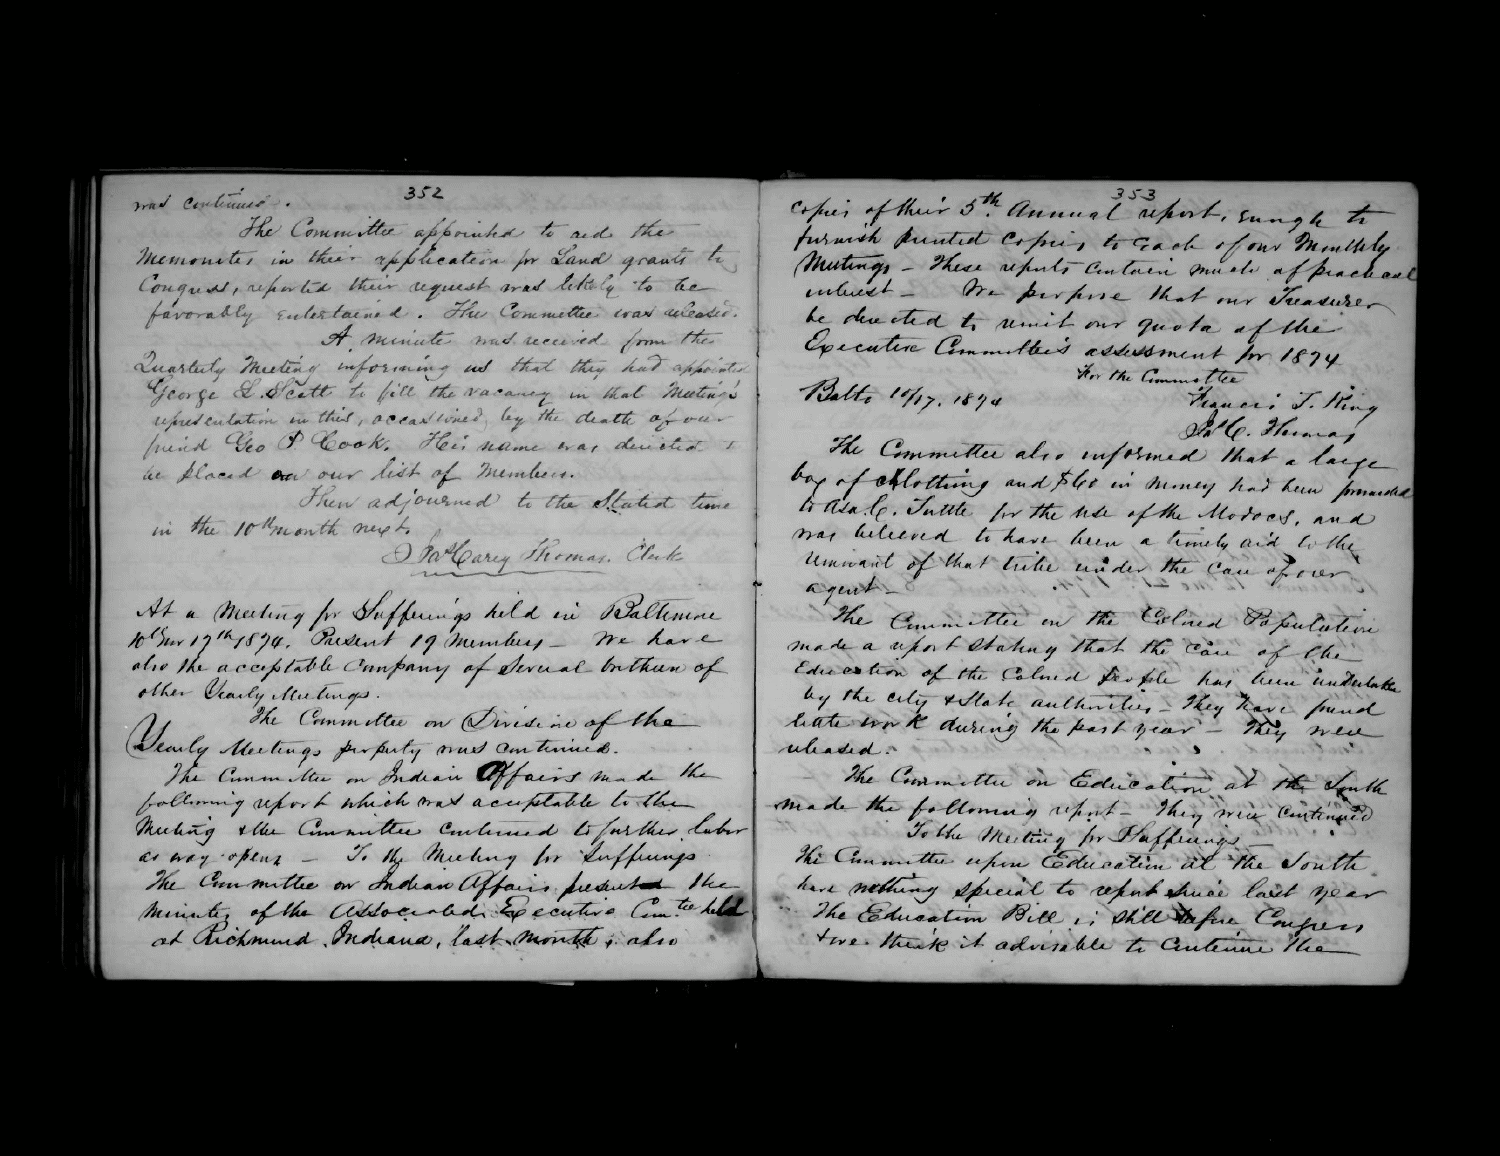 352
was continued.
The Committee appointed to aid the
Memonites in their application for Land grants to
Congress, reported their request was likely to be
favorably entertained. The Committee was released.
A minute was received from the
Quarterly Meeting informing us that they had appointed
George L. Scott to fill the vacancy in that Meeting's
representation in this, occasioned by the death of our
friend Geo P. Cook. His name was directed to
be placed on our list of members.
Then adjourned to the Stated time
in the 10th month next.
Jas Carey Thomas. Clerk
At a Meeting for Sufferings held in Baltimore
10th mo 17th 1874. Present 19 Members – We have
also the acceptable company of several brethren of
other Yearly Meetings.
The Committee on Division of the
Yearly Meetings property was continued.
The Committee on Indian Affairs made the
following report which was acceptable to the
Meeting & the Committee continued to further labor
as way opens – To the Meeting for Sufferings
The Committee on Indian Affairs present the
minutes of the Associated Executive Com.tee held
at Richmond, Indiana, last month; also
353
copies of their 5th Annual report, enough to
furnish printed copies to each of our Monthly
Meetings – These reports contain much of practical
interest – We propose that our Treasurer
be directed to remit our quota of the
Executive Committee's assessment for 1874
For the Committee
Balto 10/17. 1874
Francis T. King
Jas C. Thomas
The Committee also informed that a large
box of clothing and $60 in money had been forwarded
to Asa C. Tuttle for the use of the Modocs, and
was believed to have been a timely aid to the
remnant of that tribe under the care of our
agent –
The Committee on the Colored Population
made a report stating that the care of the
Education of the Colored People has been undertaken
by the city & State authorities – They have found
little work during the past year – They were
released.
The Committee on Education at the South
made the following report – They were continued
To the Meeting for Sufferings
The Committee upon Education at the South
have nothing special to report since last year
The Education Bill is still before Congress
& we think it advisable to continue the